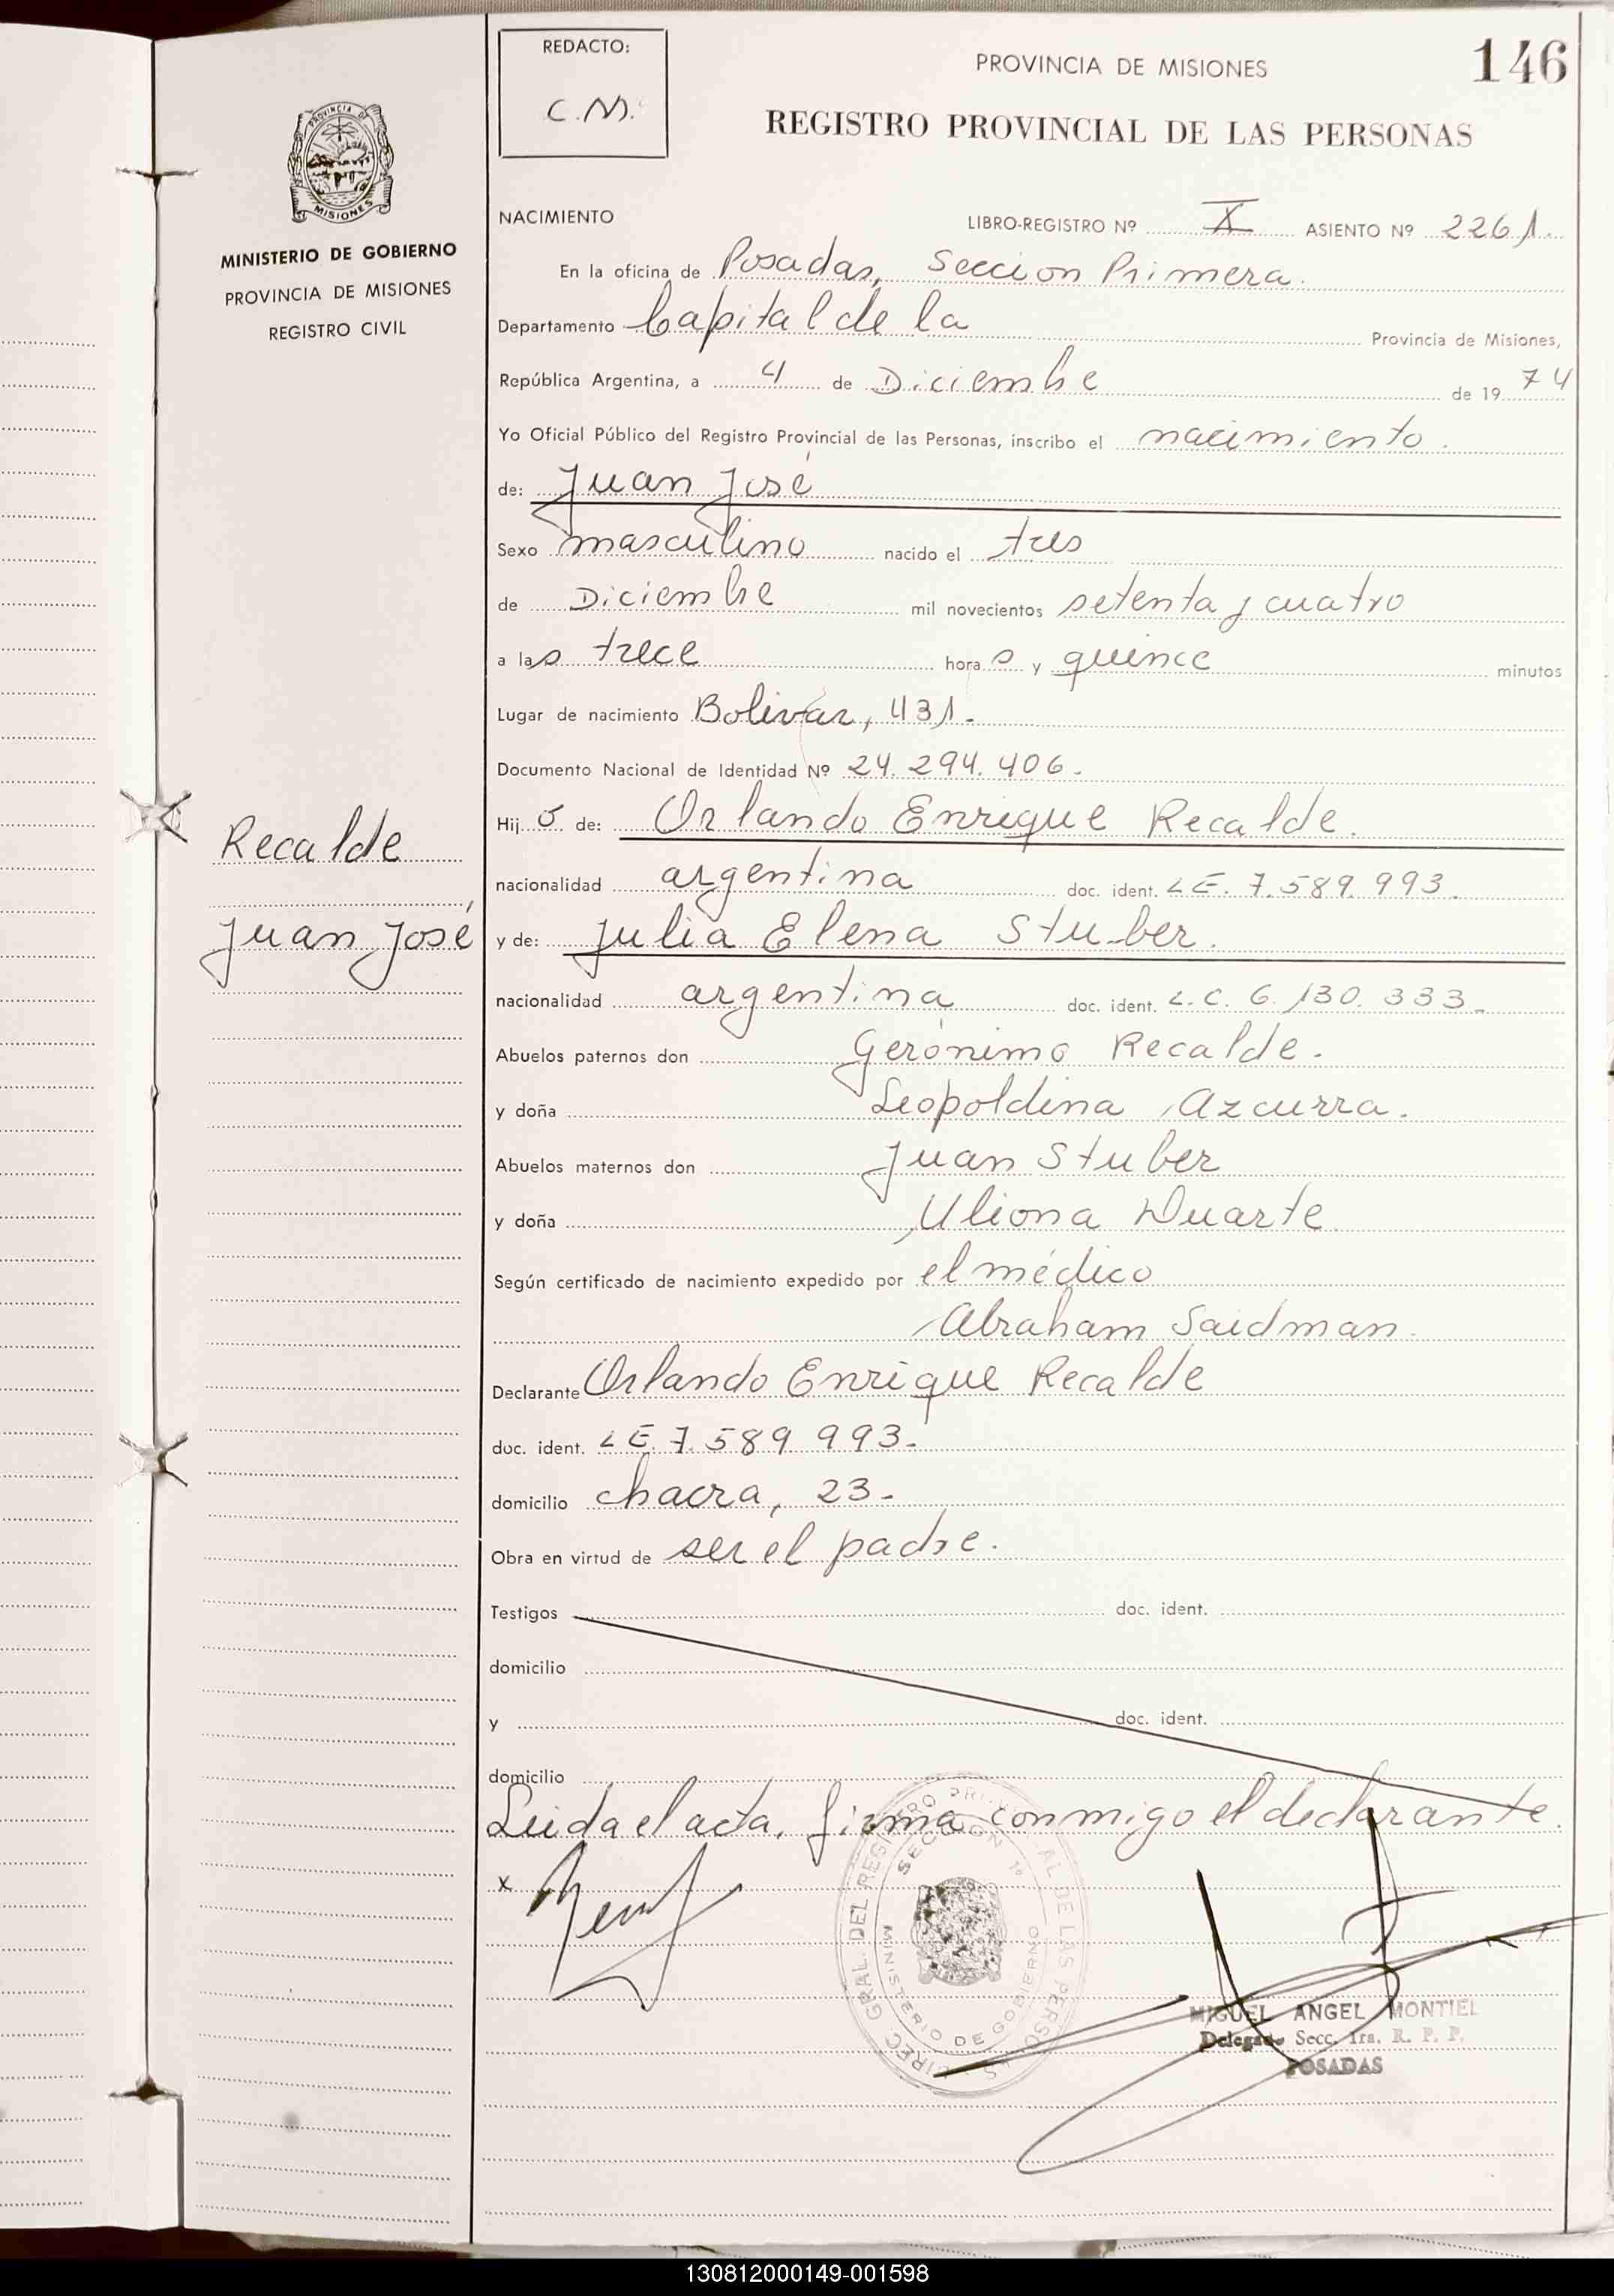 REDACTO:
C.M.
PROVINCIA DE MISIONES
146
REGISTRO PROVINCIAL DE LAS PERSONAS
PROVINCIA DE
MISIONES
MINISTERIO DE GOBIERNO
PROVINCIA DE MISIONES
REGISTRO CIVIL
NACIMIENTO LIBRO-REGISTRO Nº X ASIENTO Nº 2261.
En la oficina de Posadas, Seccion Primera.
Departamento Capital de la Provincia de Misiones,
República Argentina, a 4 de Diciembre de 1974
Yo Oficial Público del Registro Provincial de las Personas, inscribo el nacimiento.
de: Juan José
Sexo masculino nacido el tres
de Diciembre mil novecientos setenta y cuatro
a las trece horas y quince minutos
Lugar de nacimiento Bolivar, 431.
Documento Nacional de Identidad Nº 24.294.406.
Recalde
Juan José
Hijo de: Orlando Enrique Recalde.
nacionalidad argentina doc. ident. LE. 7.589.993.
y de: Julia Elena Stuber.
nacionalidad argentina doc. ident. L.C. 6.130.333.
Abuelos paternos don Gerónimo Recalde.
y doña Leopoldina Azcurra.
Abuelos maternos don Juan Stuber
y doña Uliona Duarte
Según certificado de nacimiento expedido por el médico
Abraham Saidman.
Declarante Orlando Enrique Recalde
doc. ident. LE. 7.589.993.
domicilio chacra, 23.
Obra en virtud de ser el padre.
Testigos doc. ident.
domicilio
y doc. ident.
domicilio
Leida el acta, firma conmigo el declarante.
x
DIREC. GRAL. DEL REGISTRO PROVINCIAL DE LAS PERSONAS
SECCION 1º
MINISTERIO DE GOBIERNO
MIGUEL ANGEL MONTIEL
Delegado Secc. 1ra. R. P. P.
POSADAS
130812000149-001598